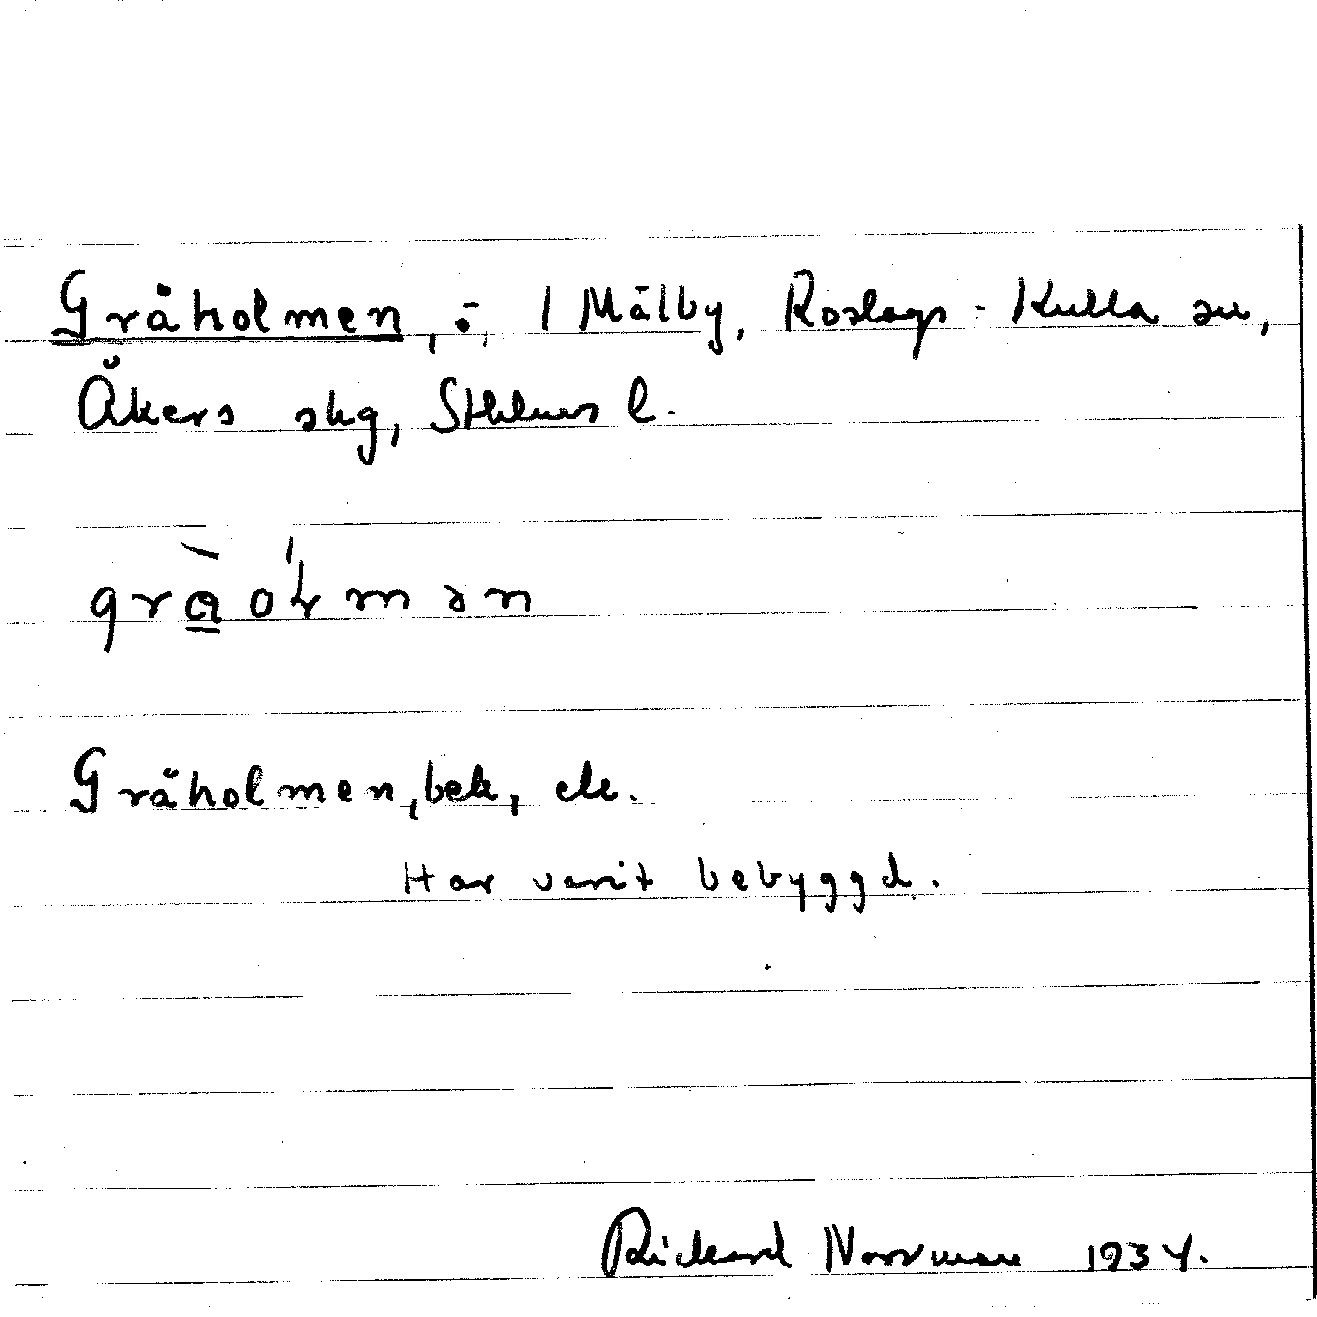 Gråholmen, ÷ 1 Målby, Roslags-Kulla sn,
Åkers skg, Sthlms l.
Gråholmen, bek, ek.
Har varit bebyggd.
Rickard Norrman 1934.